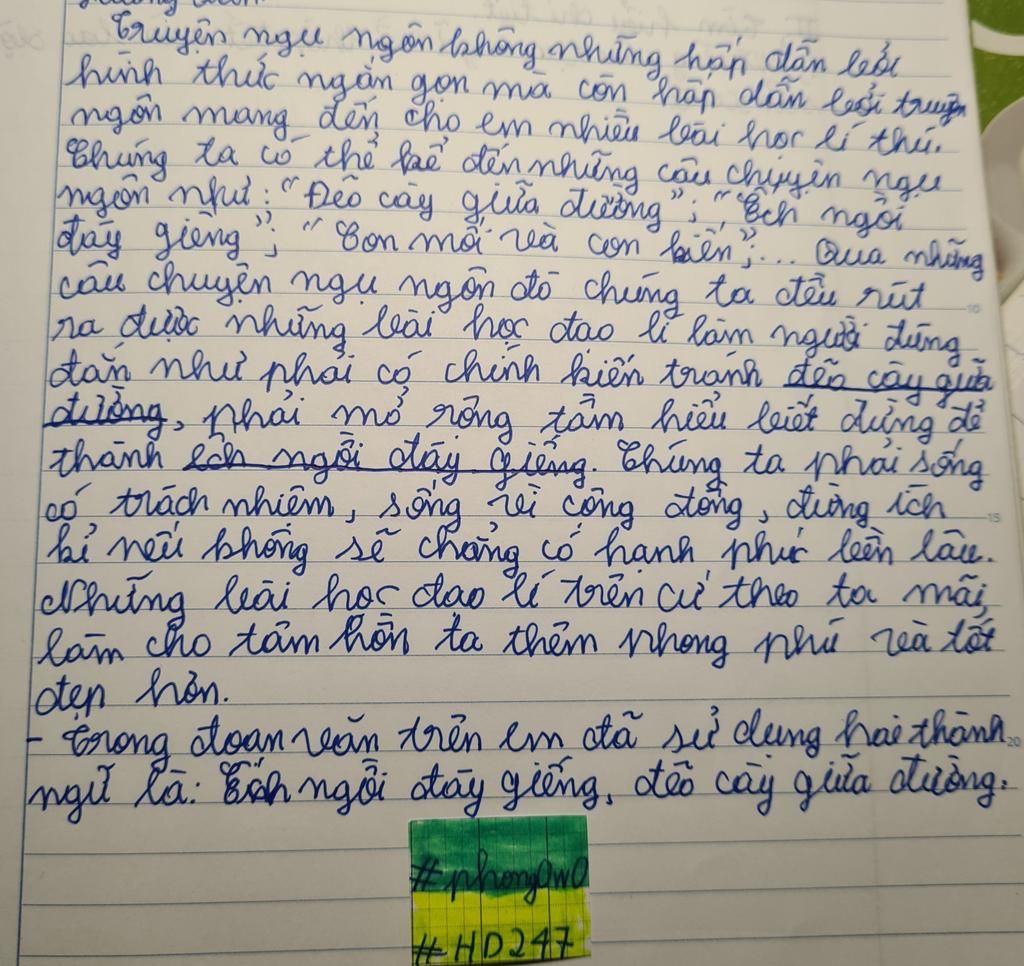 Truyện ngụ ngôn không những hấp dẫn bởi
hình thức ngắn gọn mà còn hấp dẫn bởi truyện
ngôn mang đến cho em nhiều bài học lí thú.
Chúng ta có thể kể đến những câu chuyện ngụ
ngôn như: "Đẽo cày giữa đường"; "Ếch ngồi
đáy giếng"; "Con mối và con kiến";... Qua những
câu chuyện ngụ ngôn đó chúng ta đều rút
ra được những bài học đạo lí làm người đúng
đắn như phải có chính kiến tránh đẽo cày giữa
đường, phải mở rộng tầm hiểu biết đừng để
thành ếch ngồi đáy giếng. Chúng ta phải sống
có trách nhiệm, sống vì cộng đồng, đừng ích
kỉ nếu không sẽ chẳng có hạnh phúc bền lâu.
Những bài học đạo lí trên cứ theo ta mãi,
làm cho tâm hồn ta thêm phong phú và tốt
đẹp hơn.
- Trong đoạn văn trên em đã sử dụng hai thành
ngữ là: Ếch ngồi đáy giếng, đẽo cày giữa đường.
#phongOwO
#HD247
10
15
20